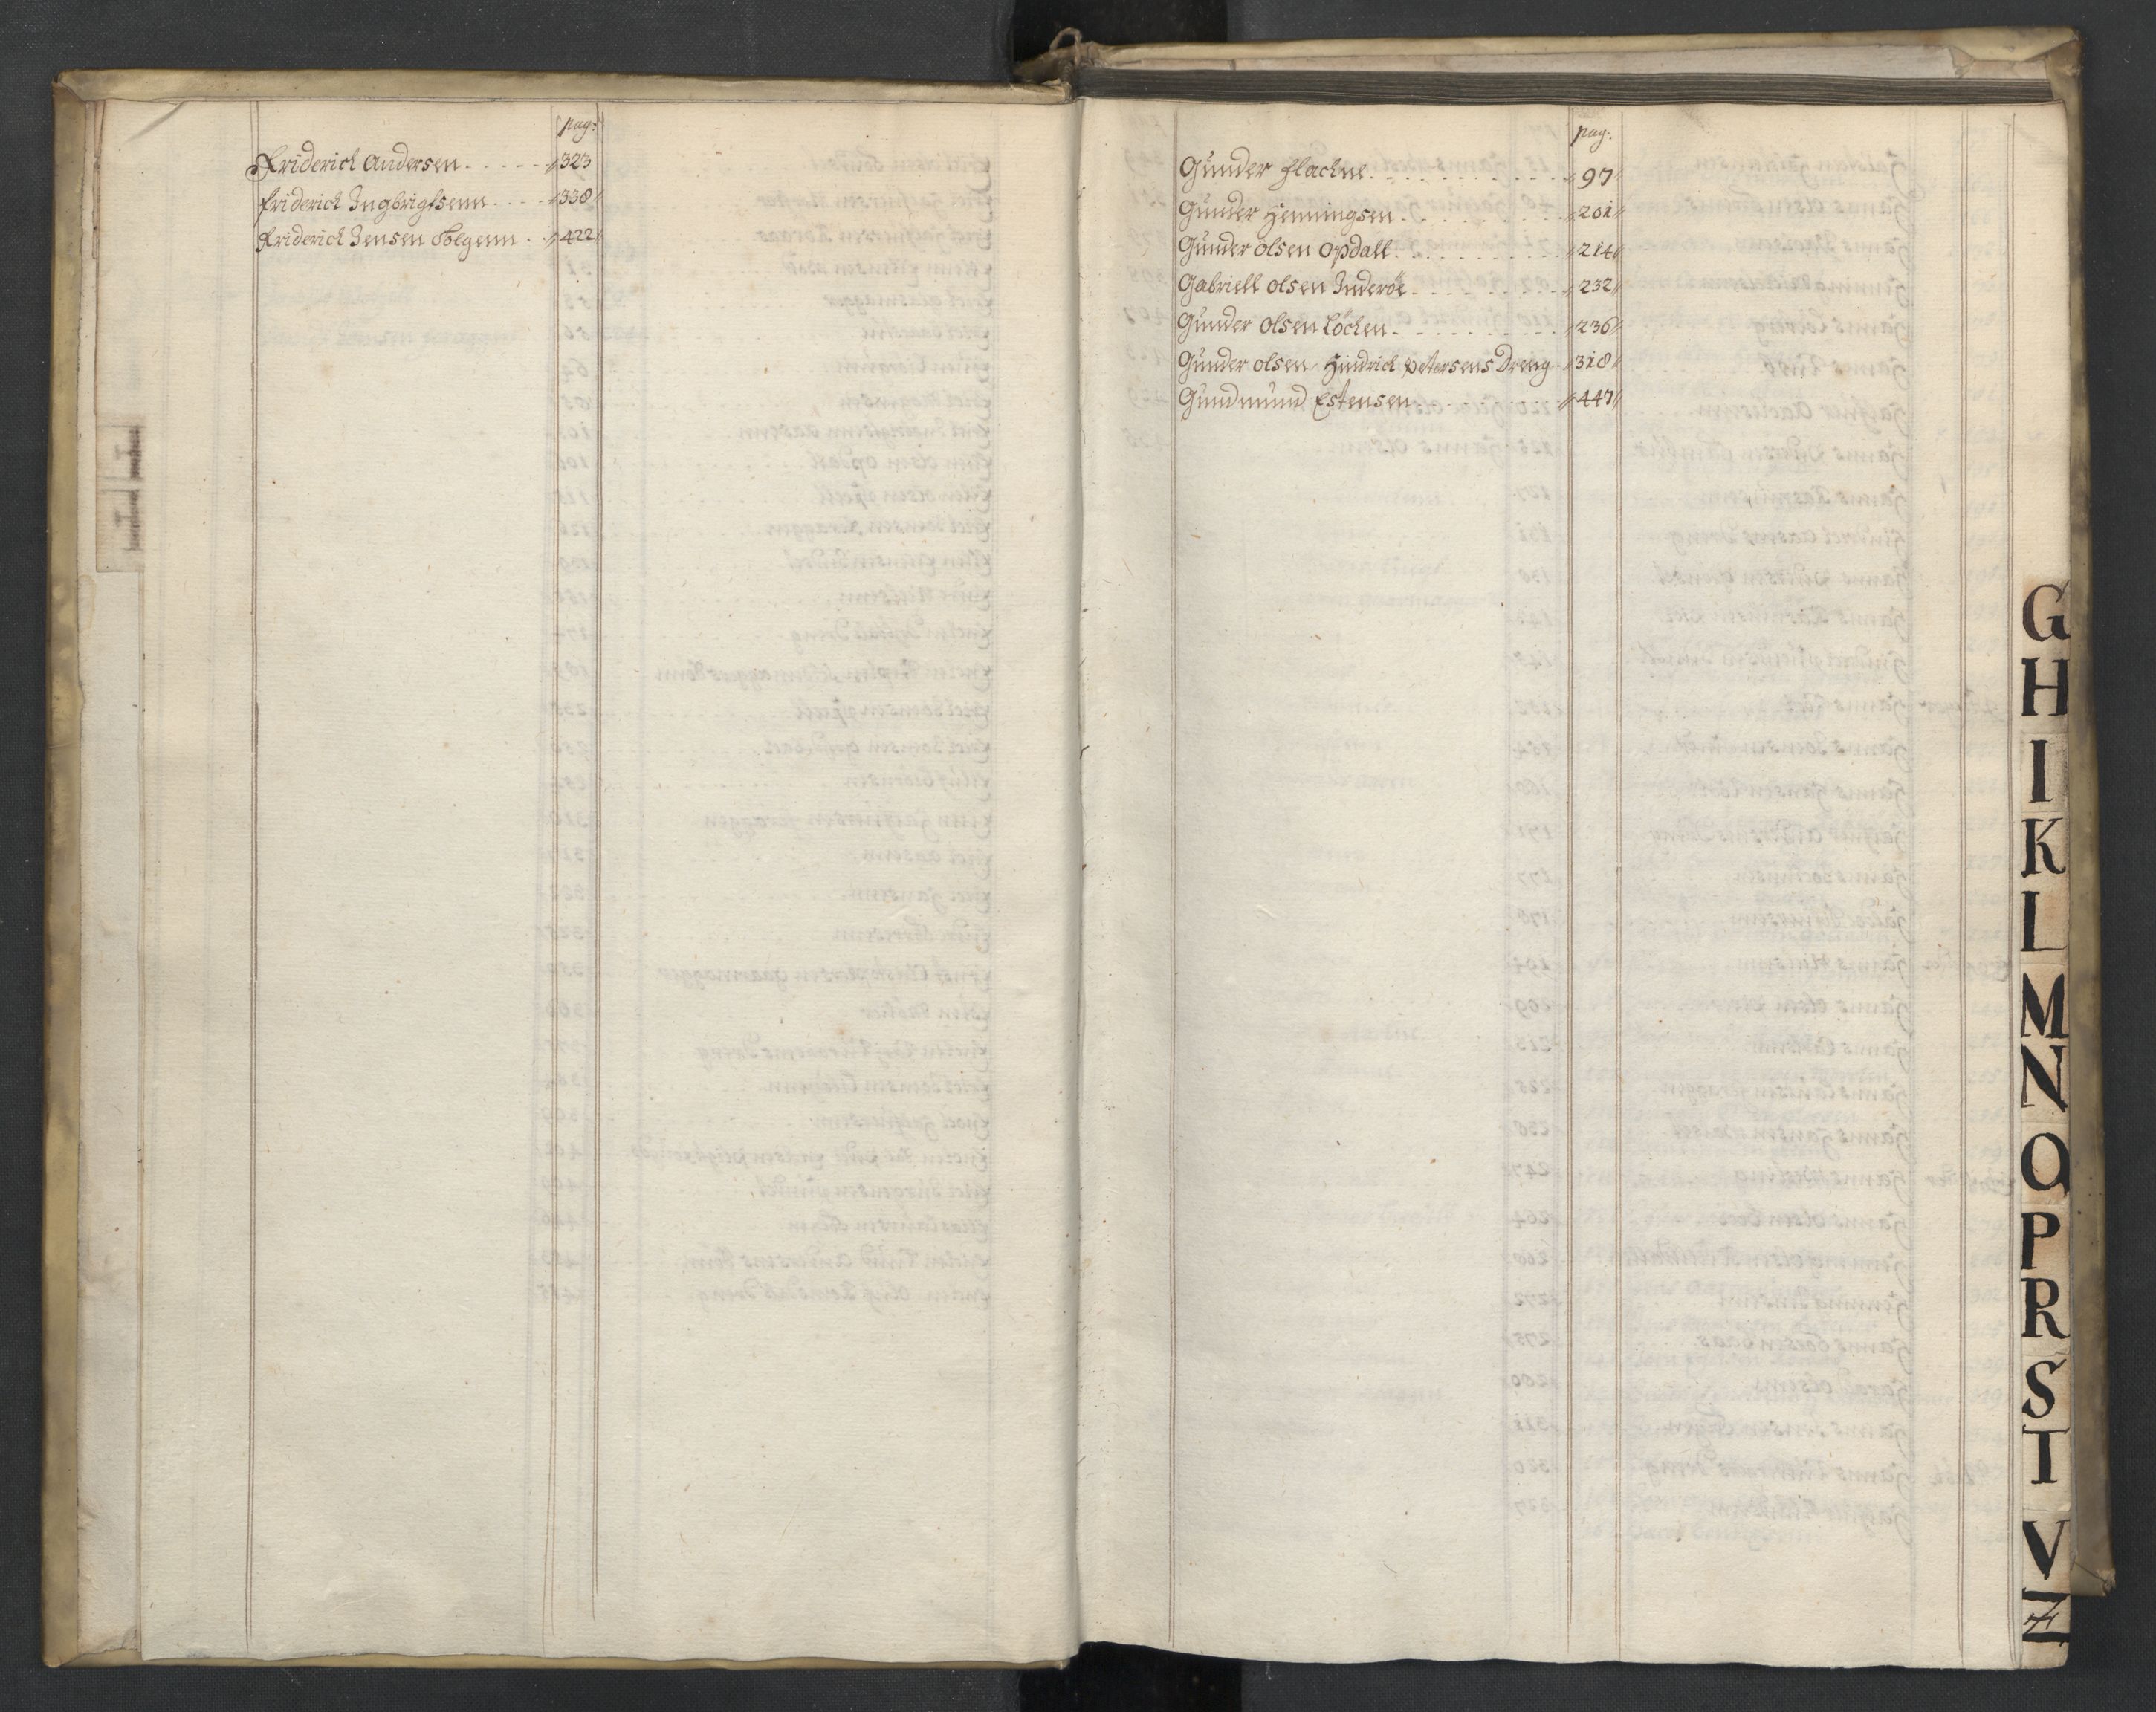 pag:
Friderich Andersen . . . . . . 323
Friderich Ingbrigtsenn . . . . 338
Friderich Jensen Tolgenn . . 422
pag:
Gunder Flachne . . . . . . . . . . . . 97
Gunder Henningsen . . . . . . . . . 201
Gunder Olsen Opdall . . . . . . . . . 214
Gabriell Olsen Inderöe . . . . . . . . 232
Gunder Olsen Löchen . . . . . . . . . 236
Gunder Olsen Hindrich Petersens Dreng . 318
Gundmund Estensen . . . . . . . . . 447
G
H
I
K
L
M
N
O
P
R
S
T
V
Z